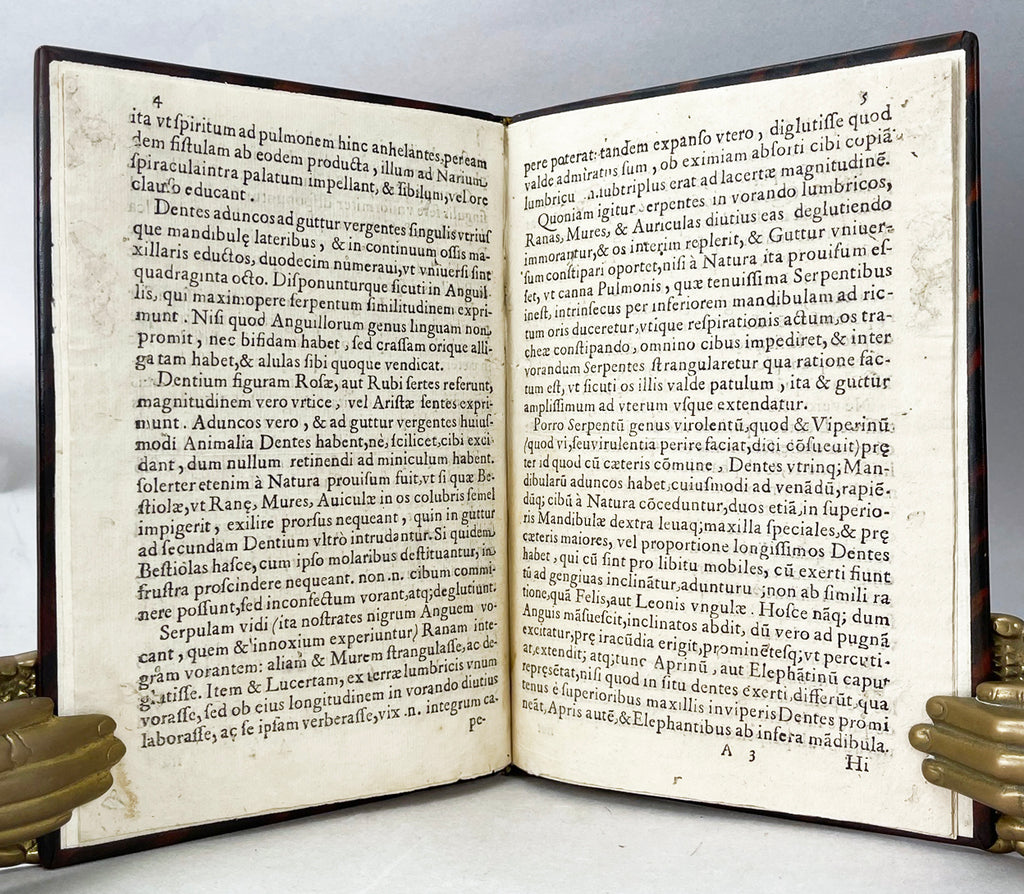 4
ita vt spiritum ad pulmonem hinc anhelantes, per eam
dem fistulam ab eodem producta, illum ad Narium
spiracula intra palatum impellant, & sibilum, vel ore
clauso educant.
Dentes aduncos ad guttur vergentes singulis vtriuſ
que mandibulę lateribus, & in continuum ossis ma-
xillaris eductos, duodecim numeraui, vt vniuersi sint
quadraginta octo. Disponunturque sicuti in Anguil
lis, qui maximopere serpentum similitudinem expri
munt. Nisi quod Anguillorum genus linguam non
promit, nec bifidam habet, sed crassam orique alli
ga tam habet, & alulas sibi quoque vendicat.
Dentium figuram Rosæ, aut Rubi sertes referunt,
magnitudinem vero vrtice, vel Aristæ sentes expri-
munt. Aduncos vero, & ad guttur vergentes huiuſ-
modi Animalia Dentes habent, ne, scilicet, cibi exci
dant, dum nullum retinendi ad miniculum habent.
solerter etenim à Natura prouisum fuit, vt si quæ Be-
stiolæ, vt Ranę, Mures, Auiculæ in os colubris semel
impigerit, exilire prorsus nequeant, quin in guttur
ad secundam Dentium vltrò intrudantur. Si quidem
Bestiolas hasce, cum ipso molaribus destituantur, in
frustra proscindere nequeant. non .n. cibum commi
nere possunt, sed inconfectum vorant, atq; deglutiunt.
Serpulam vidi (ita nostrates nigrum Anguem vo-
cant, quem & innoxium experiuntur) Ranam inte-
gram vorantem: aliam & Murem strangulasse, ac de-
glutisse. Item & Lucertam, ex terræ lumbricis vnum
vorasse, sed ob eius longitudinem in vorando diutius
laborasse, aç se ipsam verberasse, vix .n. integrum ca-
pe-
5
pere poterat: tandem expanso vtero, diglutisse quod
valde admiratus sum, ob eximiam absorti cibi copiã.
lumbricu .n. subtriplus erat ad lacertæ magnitudinẽ.
Quoniam igitur serpentes in vorando lumbricos,
Ranas, Mures, & Auriculas diutius eas deglutiendo
immorantur, & os interim replerit, & Guttur vniuer-
sum constipari oportet, nisi à Natura ita prouisum eſ-
set, vt canna Pulmonis, quæ tenuissima Serpentibus
inest, intrinsecus per inferiorem mandibulam ad ric-
tum oris duceretur, vtique respirationis actum, os tra-
cheæ constipando, omnino cibus impediret, & inter
vorandum Serpentes strangularetur qua ratione fac-
tum est, vt sicuti os illis valde patulum, ita & guttur
amplissimum ad vterum vsque extendatur.
Porro Serpentũ genus virolentũ, quod & Viperinũ
(quod vi, seu virulentia perire faciat, dici cõsueuit) prę
ter id quod cũ cæteris cõmune, Dentes vtrinq; Man-
dibularũ aduncos habet, cuiusmodi ad venãdũ, rapiẽ-
dũq; cibũ à Natura cõceduntur, duos etiã, in superio-
ris Mandibulæ dextra leuaq; maxilla speciales, & prę
cæteris maiores, vel proportione longissimos Dentes
habet, qui cũ sint pro libitu mobiles, cũ exerti fiunt
tũ ad gengiuas inclinãtur, adunturu; non ab simili ra
tione, quã Felis, aut Leonis vngulæ. Hosce nãq; dum
Anguis mãsuescit, inclinatos abdit, dũ vero ad pugnã
excitatur, prę iracũdia erigit, prominẽtesq; vt percuti-
at, extendit; atq; tunc Aprinũ, aut Elephãtinũ caput
represẽtat, nisi quod in situ dentes exerti differũt, qua
tenus è superioribus maxillis in viperis Dentes promi
neãt, Apris autẽ, & Elephantibus ab infera mãdibula.
A 3
Hi